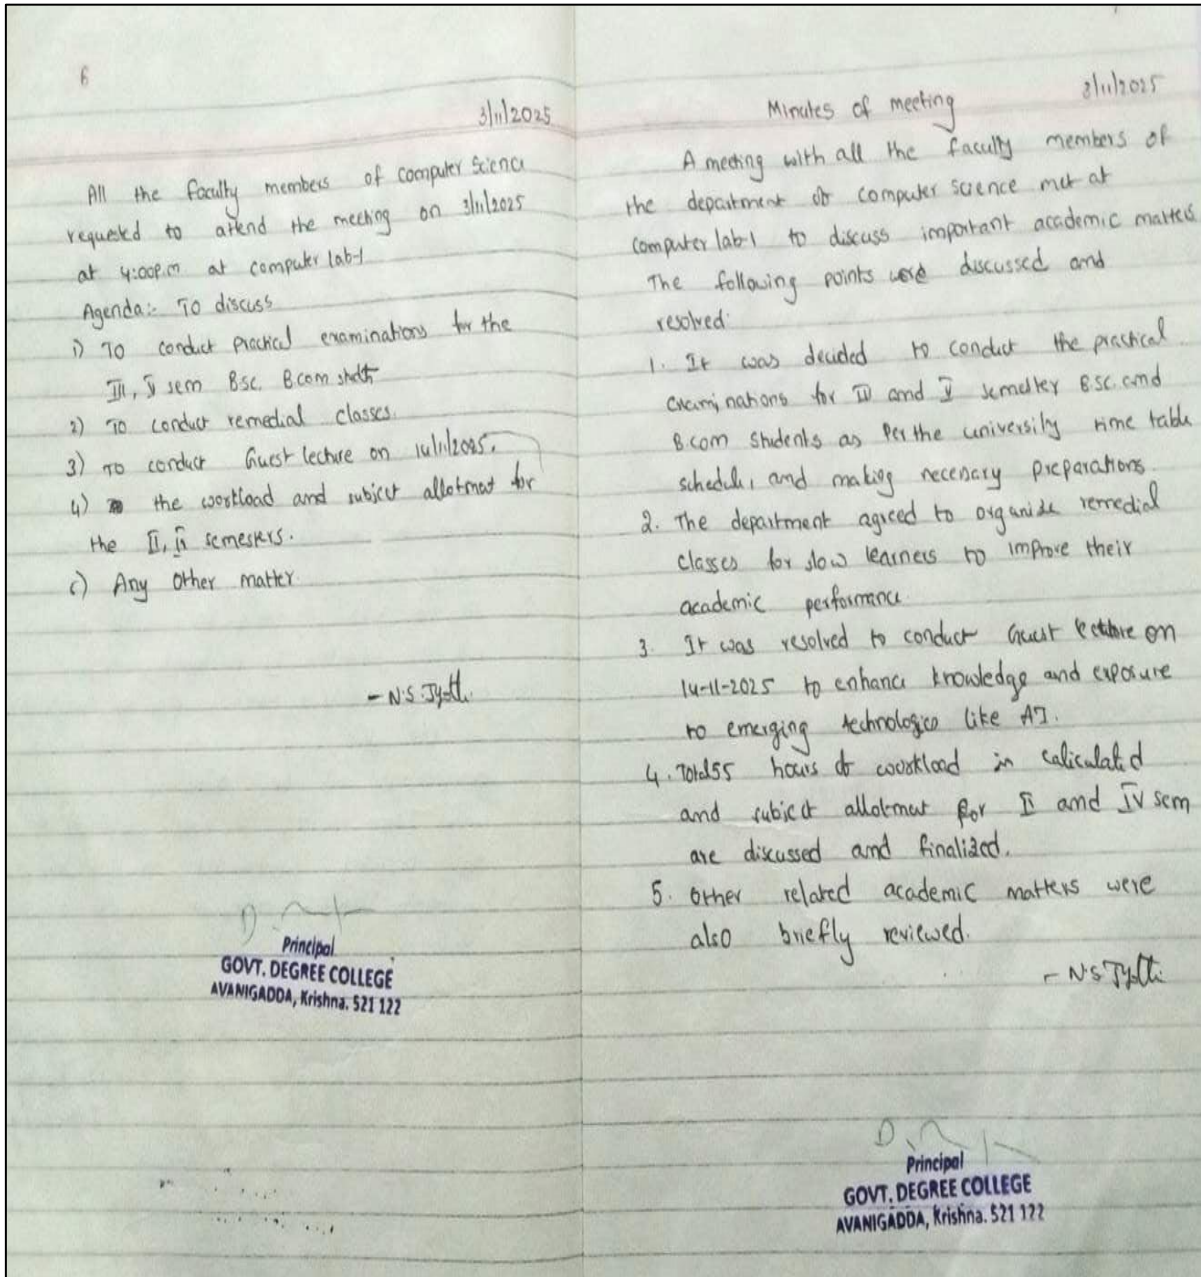 6
3/11/2025
All the faculty members of computer Science
requested to attend the meeting on 3/11/2025
at 4:00p.m at computer lab-1
Agenda:- To discuss
1) To conduct practical examinations for the
III, V sem BSC. B.com
2) To conduct remedial classes.
3) To conduct Guest lecture on
4) the workload and subject allotmat for
the II, semesters.
Any Other matter
- N.S. Jyothi
Principal
GOVT. DEGREE COLLEGE
AVANIGADDA, Krishna. 521 122
Minutes of meeting
3/11/2025
A meeting with all the faculty members of
the department of computer science met at
computer lab-1 to discuss important academic matters
The following points were discussed and
resolved:
1. It was decided to conduct the practical
examinations for and V B.SC. and
B.com Students as Per the university time table
schedule, and making necessary preparations.
2. The department agreed to organize remedial
classes for slow learners to improve their
academic performance.
3. It was resolved to conduct Guest lecture on
14-11-2025 to enhance knowledge and exposure
to emerging technologies like AI.
4. Total 55 hours of workload in caliculated
and subject allotmat for II and IV sem
are discussed and finalized.
5. Other related academic matters were
also briefly reviewed.
- N.S Jyothi
Principal
GOVT. DEGREE COLLEGE
AVANIGADDA, Krishna. 521 122